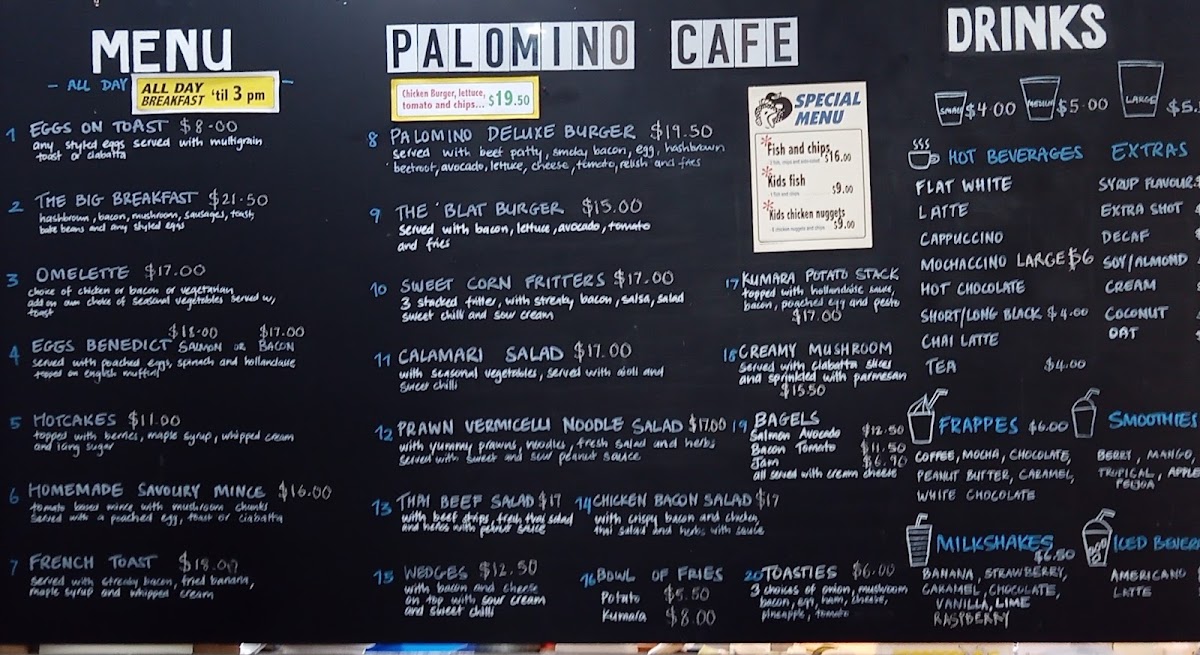 MENU
PALOMINO CAFE
DRINKS
- ALL DAY -
ALL DAY
BREAKFAST 'til 3 pm
1 EGGS ON TOAST $8.00
any styled eggs served with multigrain
toast or ciabatta
2 THE BIG BREAKFAST $21.50
hashbrown, bacon, mushroom, sausages, toast,
bake beans and any styled eggs
3 OMELETTE $17.00
choice of chicken or bacon or vegetarian
add on own choice of seasonal vegetables served w/
toast
$18.00 $17.00
4 EGGS BENEDICT SALMON OR BACON
served with poached eggs, spinach and hollandaise
topped on english muffin
5 HOTCAKES $11.00
topped with berries, maple syrup, whipped cream
and icing sugar
6 HOMEMADE SAVOURY MINCE $16.00
tomato based mince with mushroom chunks
served with a poached egg, toast or ciabatta
7 FRENCH TOAST $18.00
served with streaky bacon, fried banana,
maple syrup and whipped cream
Chicken Burger, lettuce,
tomato and chips... $19.50
8 PALOMINO DELUXE BURGER $19.50
served with beef patty, smoky bacon, egg, hashbrown
beetroot, avocado, lettuce, cheese, tomato, relish and fries
9 THE 'BLAT BURGER $15.00
served with bacon, lettuce, avocado, tomato
and fries
10 SWEET CORN FRITTERS $17.00
3 stacked fritter, with streaky bacon, salsa, salad
sweet chilli and sour cream
11 CALAMARI SALAD $17.00
with seasonal vegetables, served with aioli and
sweet chilli
12 PRAWN VERMICELLI NOODLE SALAD $17.00
with yummy prawns, noodles, fresh salad and herbs
served with sweet and sour peanut sauce
13 THAI BEEF SALAD $17
with beef strips, fresh thai salad
and herbs with peanut sauce
14 CHICKEN BACON SALAD $17
with crispy bacon and chicken,
thai salad and herbs with sauce
15 WEDGES $12.50
with bacon and cheese
on top with sour cream
and sweet chilli
16 BOWL OF FRIES
Potato $5.50
Kumara $8.00
SPECIAL
MENU
*Fish and chips
$16.00
*Kids fish
1 fish and chips
$9.00
*Kids chicken nuggets
6 chicken nuggets and chips
$9.00
17 KUMARA POTATO STACK
topped with hollandaise sauce,
bacon, poached egg and pesto
$17.00
18 CREAMY MUSHROOM
served with ciabatta slices
and sprinkled with parmesan
$15.50
19 BAGELS
Salmon Avocado $12.50
Bacon Tomato $11.50
Jam $6.90
all served with cream cheese
20 TOASTIES $6.00
3 choices of onion, mushroom
bacon, egg, ham, cheese,
pineapple, tomato
SMALL $4.00 MEDIUM $5.00 LARGE $5.
HOT BEVERAGES
FLAT WHITE
LATTE
CAPPUCCINO
MOCHACCINO LARGE $6
HOT CHOCOLATE
SHORT/LONG BLACK $4.00
CHAI LATTE
TEA $4.00
EXTRAS
SYRUP FLAVOUR
EXTRA SHOT
DECAF
SOY/ALMOND
CREAM
COCONUT
OAT
FRAPPES $6.00
COFFEE, MOCHA, CHOCOLATE,
PEANUT BUTTER, CARAMEL,
WHITE CHOCOLATE
SMOOTHIES
BERRY, MANGO,
TROPICAL, APPLE
FEIJOA
MILKSHAKES
$6.50
BANANA, STRAWBERRY,
CARAMEL, CHOCOLATE,
VANILLA, LIME
RASPBERRY
ICED BEVER
AMERICANO
LATTE